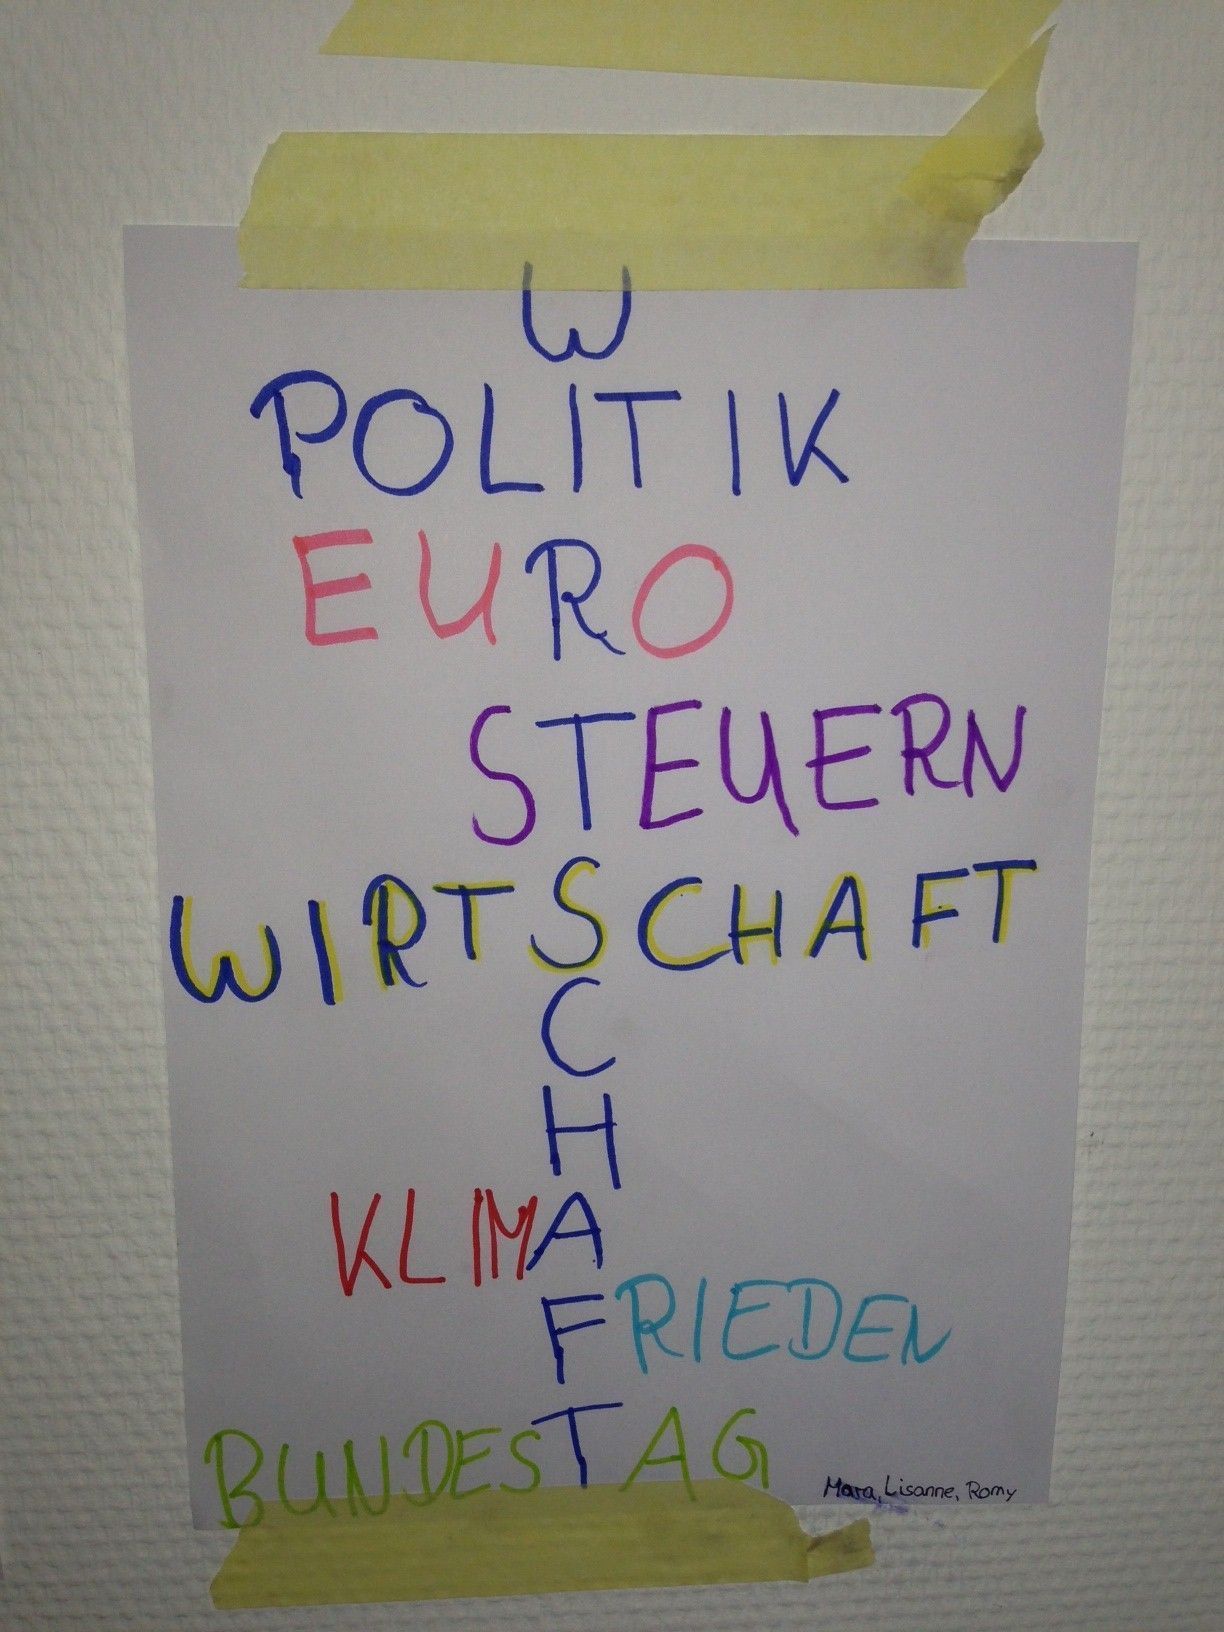 W
POLITIK
EURO
STEUERN
WIRTSCHAFT
C
H
KLIMA
FRIEDEN
BUNDESTAG
Mara, Lisanne, Romy